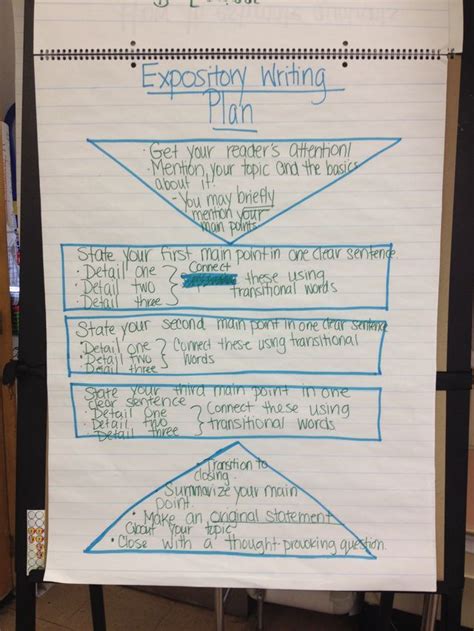 Expository Writing
Plan
· Get your reader's attention!
· Mention your topic and the basics
about it!
- You may briefly
mention your
main points.
State your first main point in one clear sentence.
· Detail one
· Detail two
· Detail three
} Connect these using
transitional words
State your second main point in one clear sentence
· Detail one
· Detail two
· Detail three
} Connect these using transitional
words
State your third main point in one
clear sentence
· Detail one
· Detail two
· Detail three
} Connect these using
transitional words
· Transition to
closing.
· Summarize your main
point.
· Make an original statement
about your topic
· Close with a thought-provoking question.